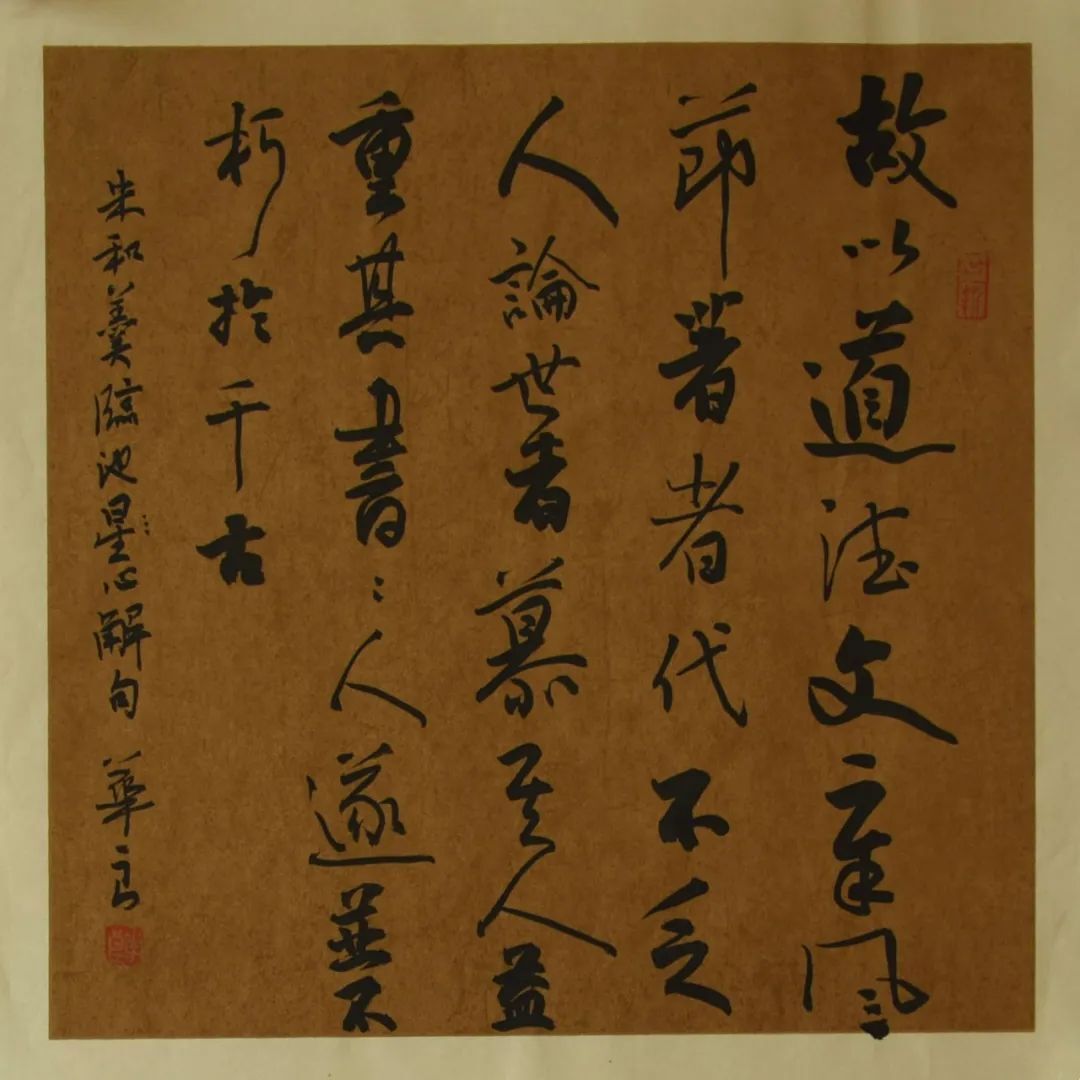 故以道德文章風
節著者代不乏
人論世者慕其人益
重其書〻人遂並不
朽於千古
朱和羹臨池心解句 華良